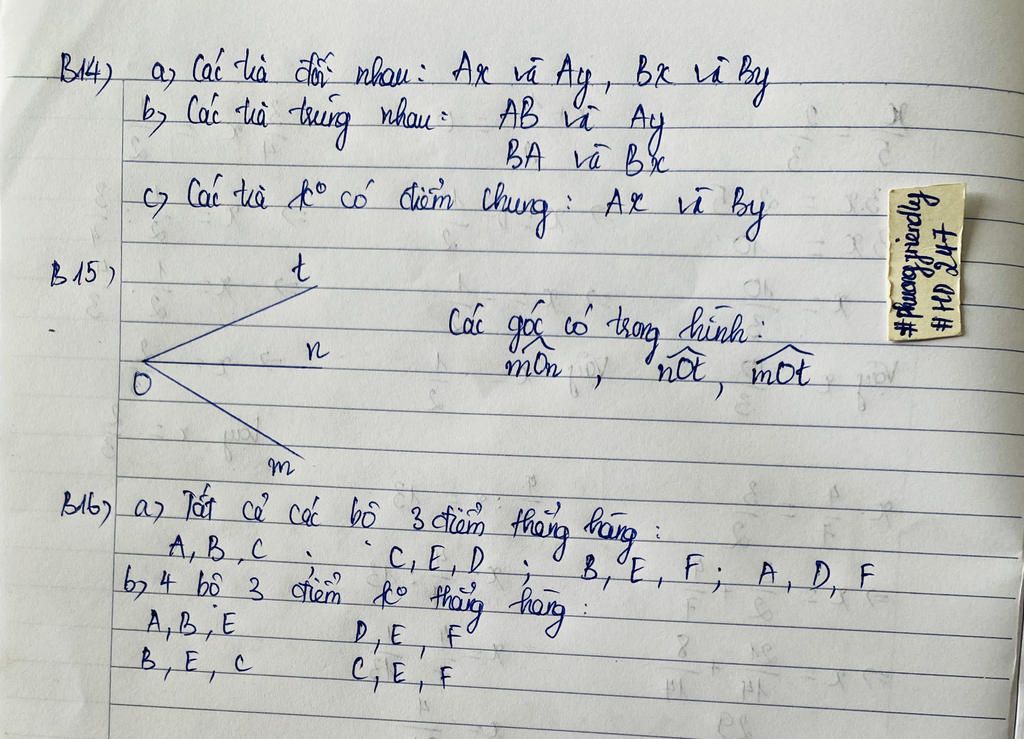 B14) a) Các tia đối nhau: Ax và Ay, Bx và By
b) Các tia trùng nhau: AB và Ay
BA và Bx
c) Các tia k° có điểm chung: Ax và By
#phuongfriendly
#HD 247
B15)
t
n
O
m
Các góc có trong hình:
mOn, nOt, mOt
B16) a) Tất cả các bộ 3 điểm thẳng hàng:
A, B, C ; C, E, D ; B, E, F ; A, D, F
b) 4 bộ 3 điểm k° thẳng hàng:
A, B, E D, E, F
B, E, C C, E, F